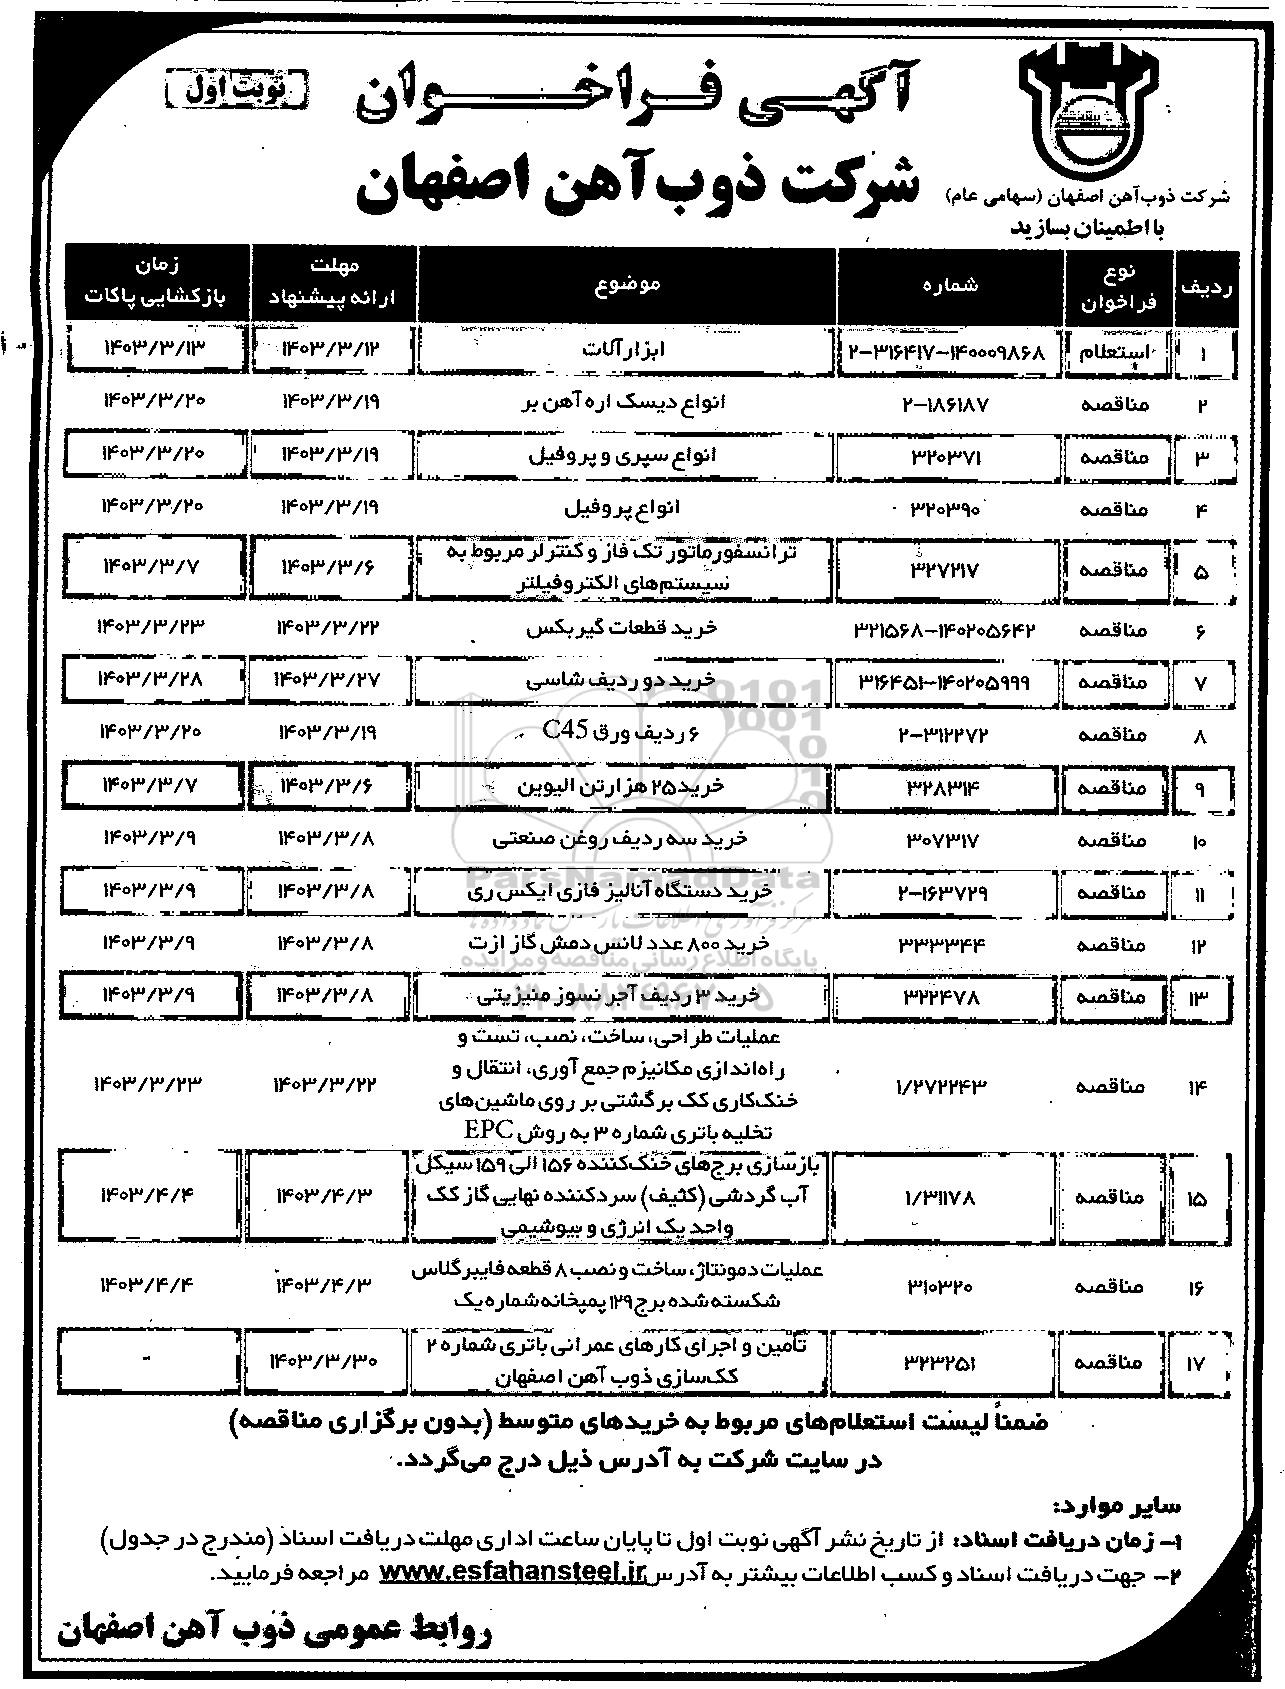 آگهی فراخوان
نوبت اول
شرکت ذوب‌آهن اصفهان
شرکت ذوب‌آهن اصفهان (سهامی عام)
با اطمینان بسازید
ردیف نوع فراخوان شماره موضوع مهلت ارائه پیشنهاد زمان بازگشایی پاکات
۱ استعلام ۲-۳۱۶۴۱۷-۱۴۰۰۰۹۸۶۸ ابزارآلات ۱۴۰۳/۳/۱۲ ۱۴۰۳/۳/۱۳
۲ مناقصه ۲-۱۸۶۱۸۷ انواع دیسک اره آهن بر ۱۴۰۳/۳/۱۹ ۱۴۰۳/۳/۲۰
۳ مناقصه ۳۲۰۳۷۱ انواع سپری و پروفیل ۱۴۰۳/۳/۱۹ ۱۴۰۳/۳/۲۰
۴ مناقصه ۳۲۰۳۹۰ انواع پروفیل ۱۴۰۳/۳/۱۹ ۱۴۰۳/۳/۲۰
۵ مناقصه ۳۲۷۲۱۷ ترانسفورماتور تک فاز و کنترلر مربوط به
سیستم‌های الکتروفیلتر ۱۴۰۳/۳/۶ ۱۴۰۳/۳/۷
۶ مناقصه ۳۲۱۵۶۸-۱۴۰۲۰۵۶۴۲ خرید قطعات گیربکس ۱۴۰۳/۳/۲۲ ۱۴۰۳/۳/۲۳
۷ مناقصه ۳۱۶۴۵۱-۱۴۰۲۰۵۹۹۹ خرید دو ردیف شاسی ۱۴۰۳/۳/۲۷ ۱۴۰۳/۳/۲۸
۸ مناقصه ۲-۳۱۲۲۷۲ ۶ ردیف ورق C45 ۱۴۰۳/۳/۱۹ ۱۴۰۳/۳/۲۰
۹ مناقصه ۳۲۸۳۱۴ خرید ۲۵ هزار تن الیوین ۱۴۰۳/۳/۶ ۱۴۰۳/۳/۷
۱۰ مناقصه ۳۰۷۳۱۷ خرید سه ردیف روغن صنعتی ۱۴۰۳/۳/۸ ۱۴۰۳/۳/۹
۱۱ مناقصه ۲-۱۶۳۷۲۹ خرید دستگاه آنالیز فازی ایکس ری ۱۴۰۳/۳/۸ ۱۴۰۳/۳/۹
۱۲ مناقصه ۳۳۳۳۴۴ خرید ۸۰۰ عدد لانس دمش گاز ازت ۱۴۰۳/۳/۸ ۱۴۰۳/۳/۹
۱۳ مناقصه ۳۲۲۴۷۸ خرید ۳ ردیف آجر نسوز منیزیتی ۱۴۰۳/۳/۸ ۱۴۰۳/۳/۹
۱۴ مناقصه ۱/۲۷۲۲۴۳ عملیات طراحی، ساخت، نصب، تست و
راه‌اندازی مکانیزم جمع آوری، انتقال و
خنک‌کاری کک برگشتی بر روی ماشین‌های
تخلیه باتری شماره ۳ به روش EPC ۱۴۰۳/۳/۲۲ ۱۴۰۳/۳/۲۳
۱۵ مناقصه ۱/۳۱۱۷۸ بازسازی برج‌های خنک‌کننده ۱۵۶ الی ۱۵۹ سیکل
آب گردشی (کثیف) سردکننده نهایی گاز کک
واحد یک انرژی و بیوشیمی ۱۴۰۳/۴/۳ ۱۴۰۳/۴/۴
۱۶ مناقصه ۳۱۰۳۲۰ عملیات دمونتاژ، ساخت و نصب ۸ قطعه فایبرگلاس
شکسته شده برج ۱۲۹ پمپخانه شماره یک ۱۴۰۳/۴/۳ ۱۴۰۳/۴/۴
۱۷ مناقصه ۳۲۳۲۵۱ تأمین و اجرای کارهای عمرانی باتری شماره ۲
کک‌سازی ذوب آهن اصفهان ۱۴۰۳/۳/۳۰ -
ParsNamadData
پایگاه اطلاع رسانی مناقصه و مزایده
ضمناً لیست استعلام‌های مربوط به خریدهای متوسط (بدون برگزاری مناقصه)
در سایت شرکت به آدرس ذیل درج می‌گردد.
سایر موارد:
۱- زمان دریافت اسناد: از تاریخ نشر آگهی نوبت اول تا پایان ساعت اداری مهلت دریافت اسناد (مندرج در جدول)
۲- جهت دریافت اسناد و کسب اطلاعات بیشتر به آدرس www.esfahansteel.ir مراجعه فرمایید.
روابط عمومی ذوب آهن اصفهان